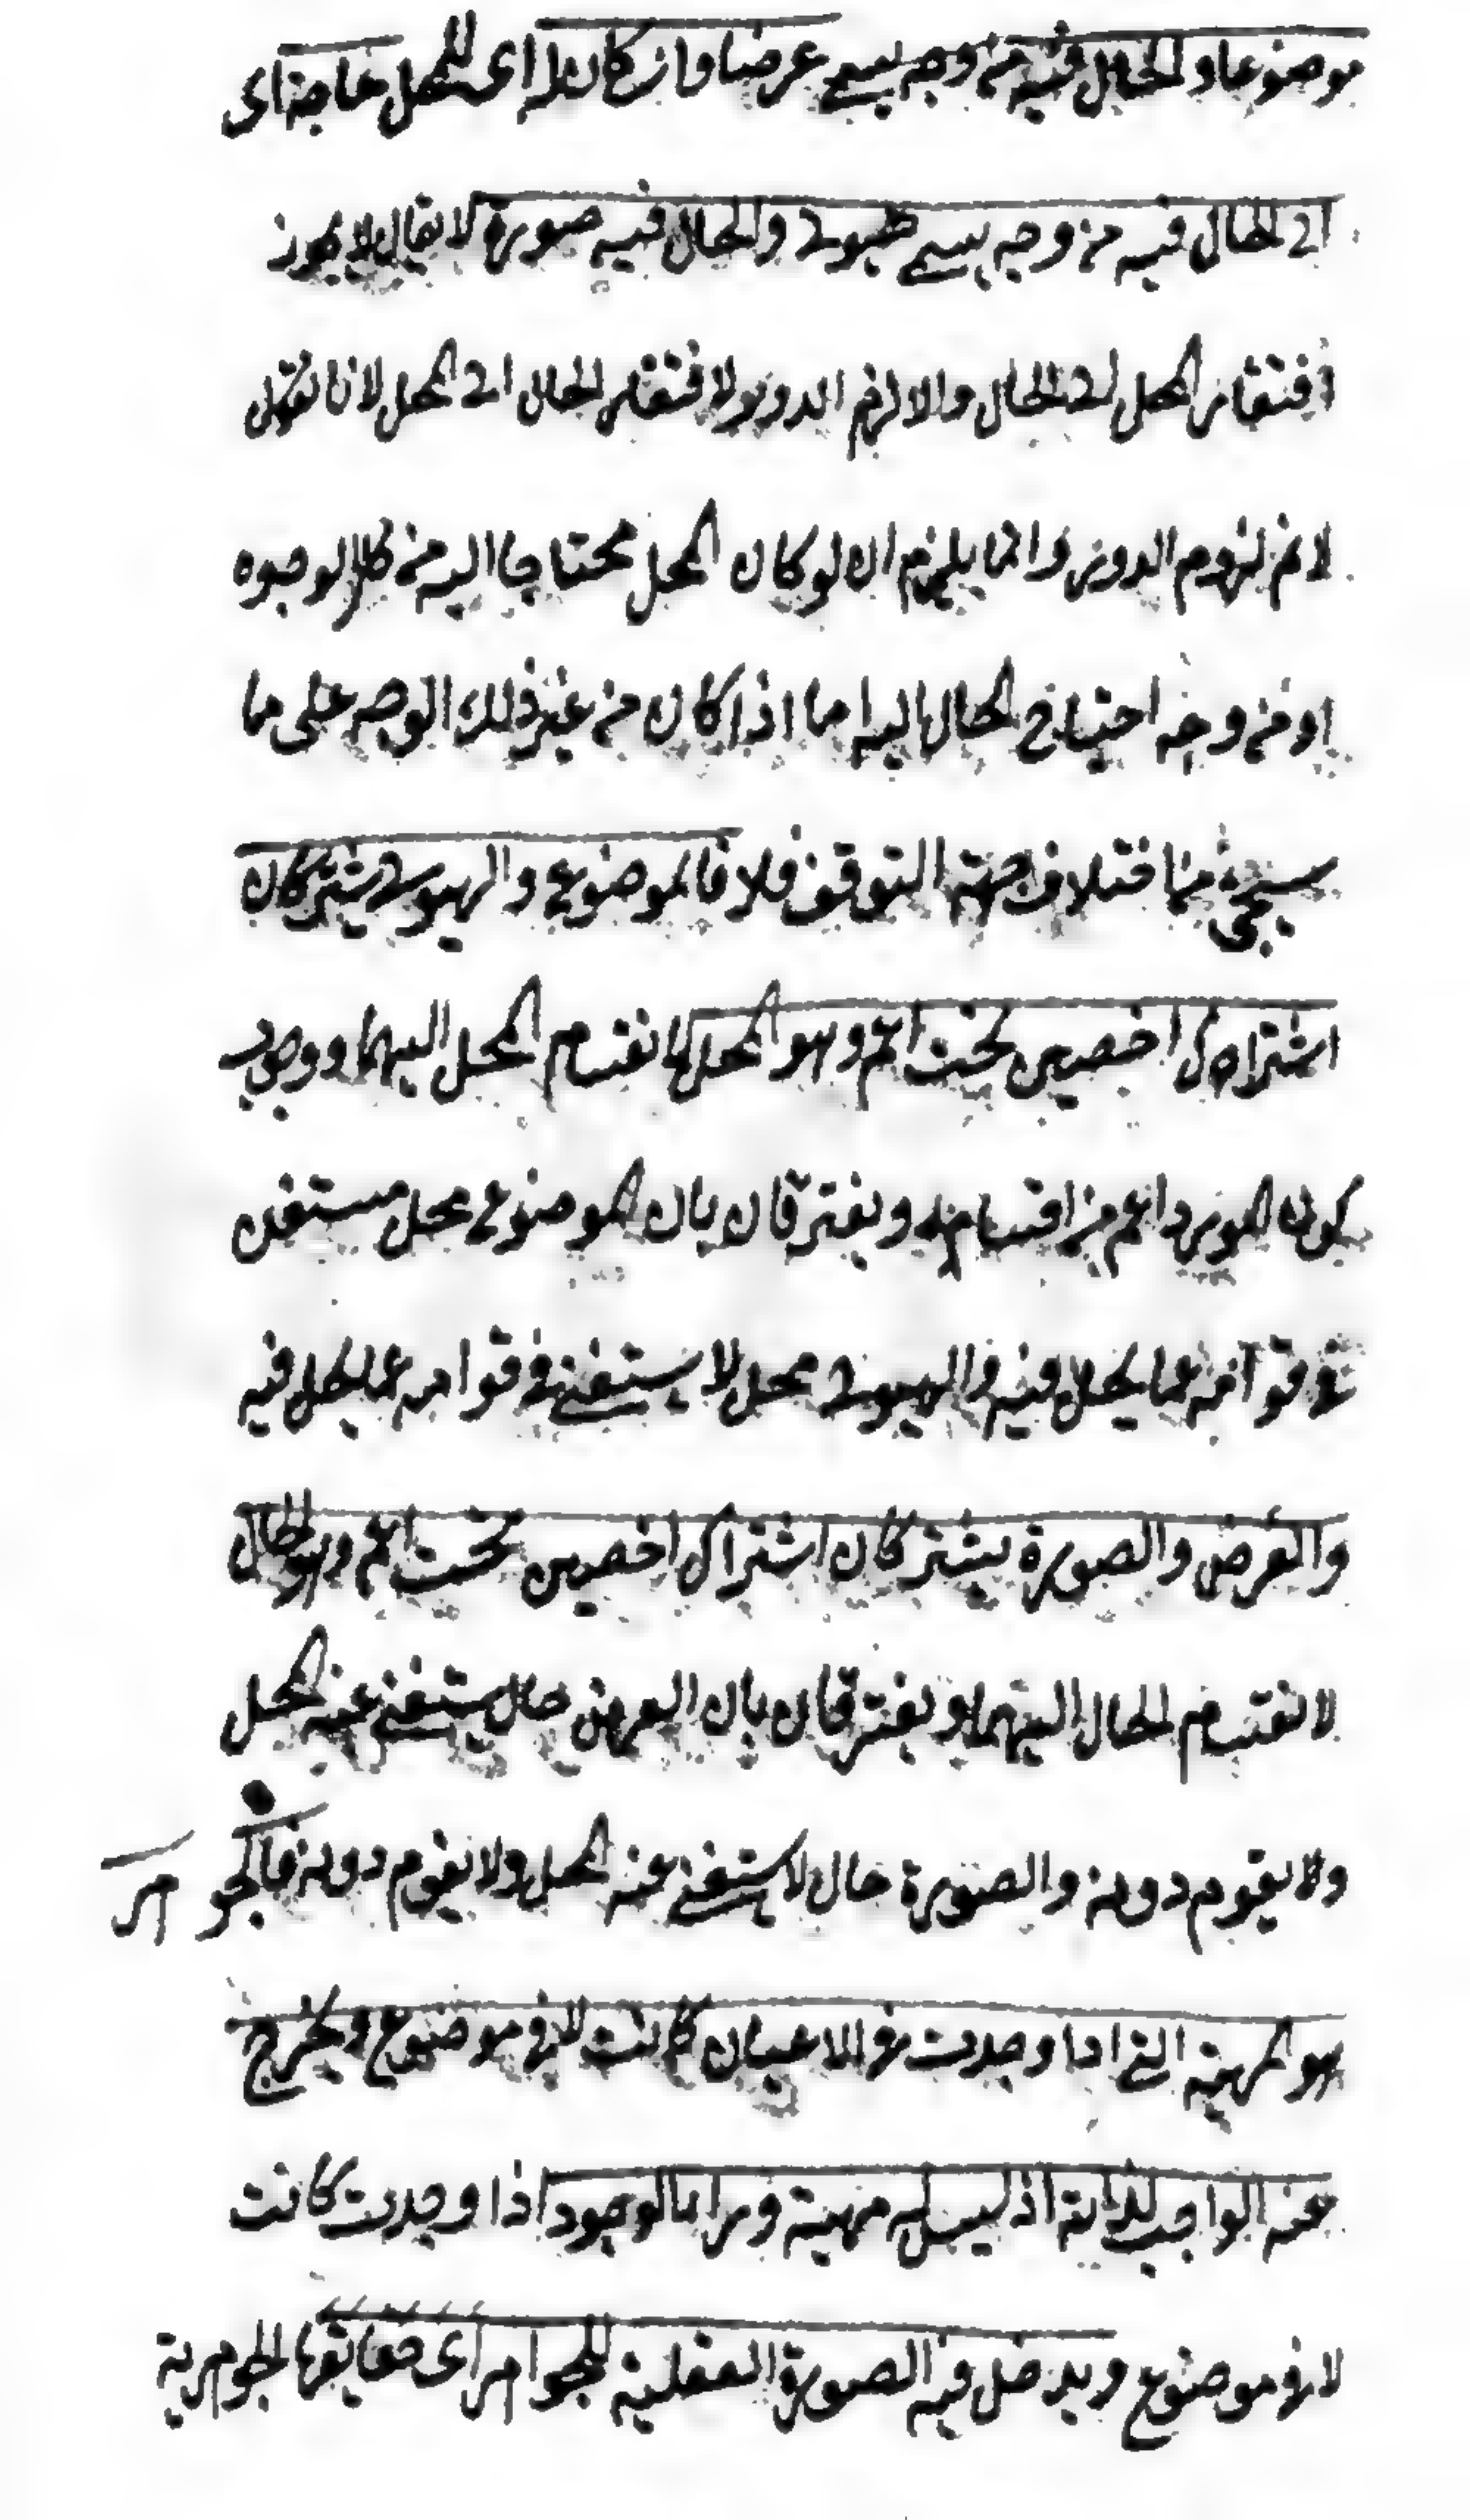 موضوعا والحال فيه من وجه يسمى عرضا وان كان له اى للمحل حاجة اى
الى الحال فيه من وجه يسمى هيولى والحال فيه صورة لا يقال لا يجوز
افتقار المحل الى الحال والا لزم الدور لافتقار الحال الى المحل لانا نقول
لانم لزوم الدور وانما يلزم ان لو كان المحل محتاجا اليه من كل الوجوه
او من وجه احتياج الحال اليه اما اذا كان من غير ذلك الوجه على ما
سيجئ من اختلاف جهة التوقف فلا فالموضوع والهيولى يشتركان
اشتراك اخصين تحت اعم وهو المحل لانقسام المحل اليهما ووجوب
كون المورد اعم من اقسامه ويفترقان بان الموضوع محل مستغن
فى قوامه عما يحل فيه والهيولى محل لا يستغنى فى قوامه عما يحل فيه
والعرض والصورة يشتركان اشتراك اخصين تحت اعم وهو الحال
لانقسام الحال اليهما ويفترقان بان العرض حال يستغنى عنه المحل
ولا يقوم دونه والصورة حال لا يستغنى عنه المحل ولا يقوم دونه فالجوهر
هو المهية التى اذا وجدت فى الاعيان كانت لا فى موضوع ويخرج
عنه الواجب لذاته اذ ليس له مهية وراء الوجود اذا وجدت كانت
لا فى موضوع ويدخل فيه الصورة العقلية للجواهر اى حقايقها الجوهرية